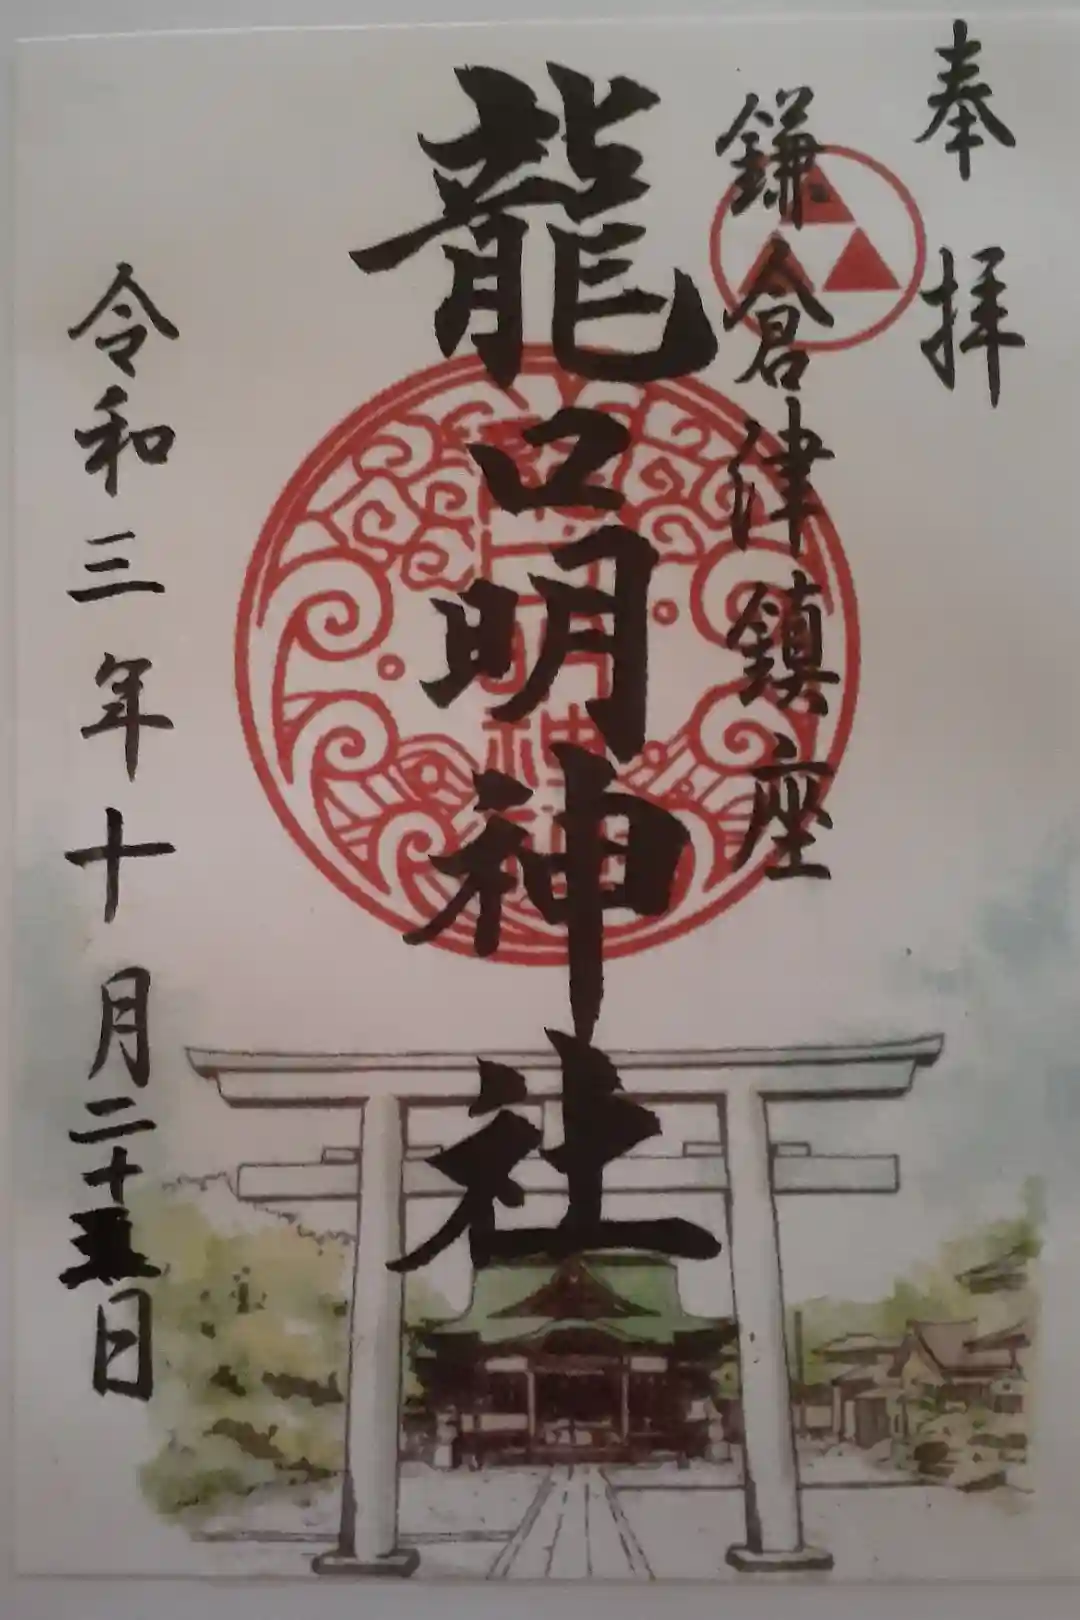 奉拝
鎌倉津鎮座
龍口明神社
令和三年十月二十五日